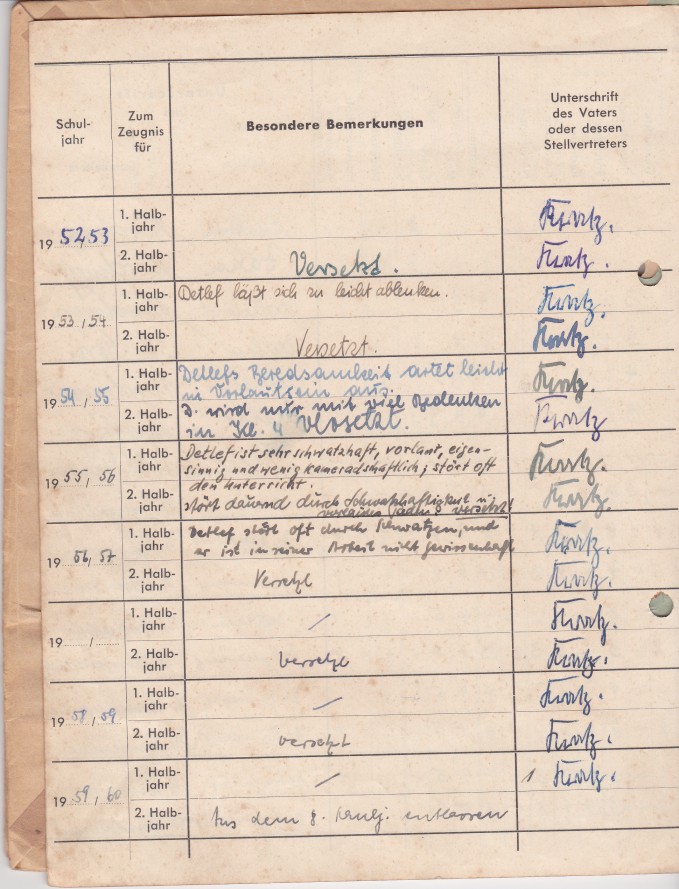 Schul-
jahr
Zum
Zeugnis
für
Besondere Bemerkungen
Unterschrift
des Vaters
oder dessen
Stellvertreters
19 52/53
1. Halb-
jahr
2. Halb-
jahr
Versetzt.
19 53/54
1. Halb-
jahr
Detlef läßt sich zu leicht ablenken.
2. Halb-
jahr
Versetzt.
19 54/55
1. Halb-
jahr
Detlefs Beredsamkeit artet leicht
in Vorlautsein aus.
2. Halb-
jahr
D. wird nur mit viel Bedenken
in Kl. 4 versetzt.
19 55/56
1. Halb-
jahr
Detlef ist sehr schwatzhaft, vorlaut, eigen-
sinnig und wenig kameradschaftlich; stört oft
den Unterricht.
2. Halb-
jahr
stört dauernd durch Schwatzhaftigkeit u.
vorlautes versetzt!
19 56/57
1. Halb-
jahr
Detlef stört oft durch Schwatzen, und
er ist in seiner Arbeit nicht gewissenhaft
2. Halb-
jahr
Versetzt
19 /
1. Halb-
jahr
/
2. Halb-
jahr
versetzt
19 58/59
1. Halb-
jahr
/
2. Halb-
jahr
versetzt
19 59/60
1. Halb-
jahr
/
2. Halb-
jahr
Aus dem 8. Schulj. entlassen